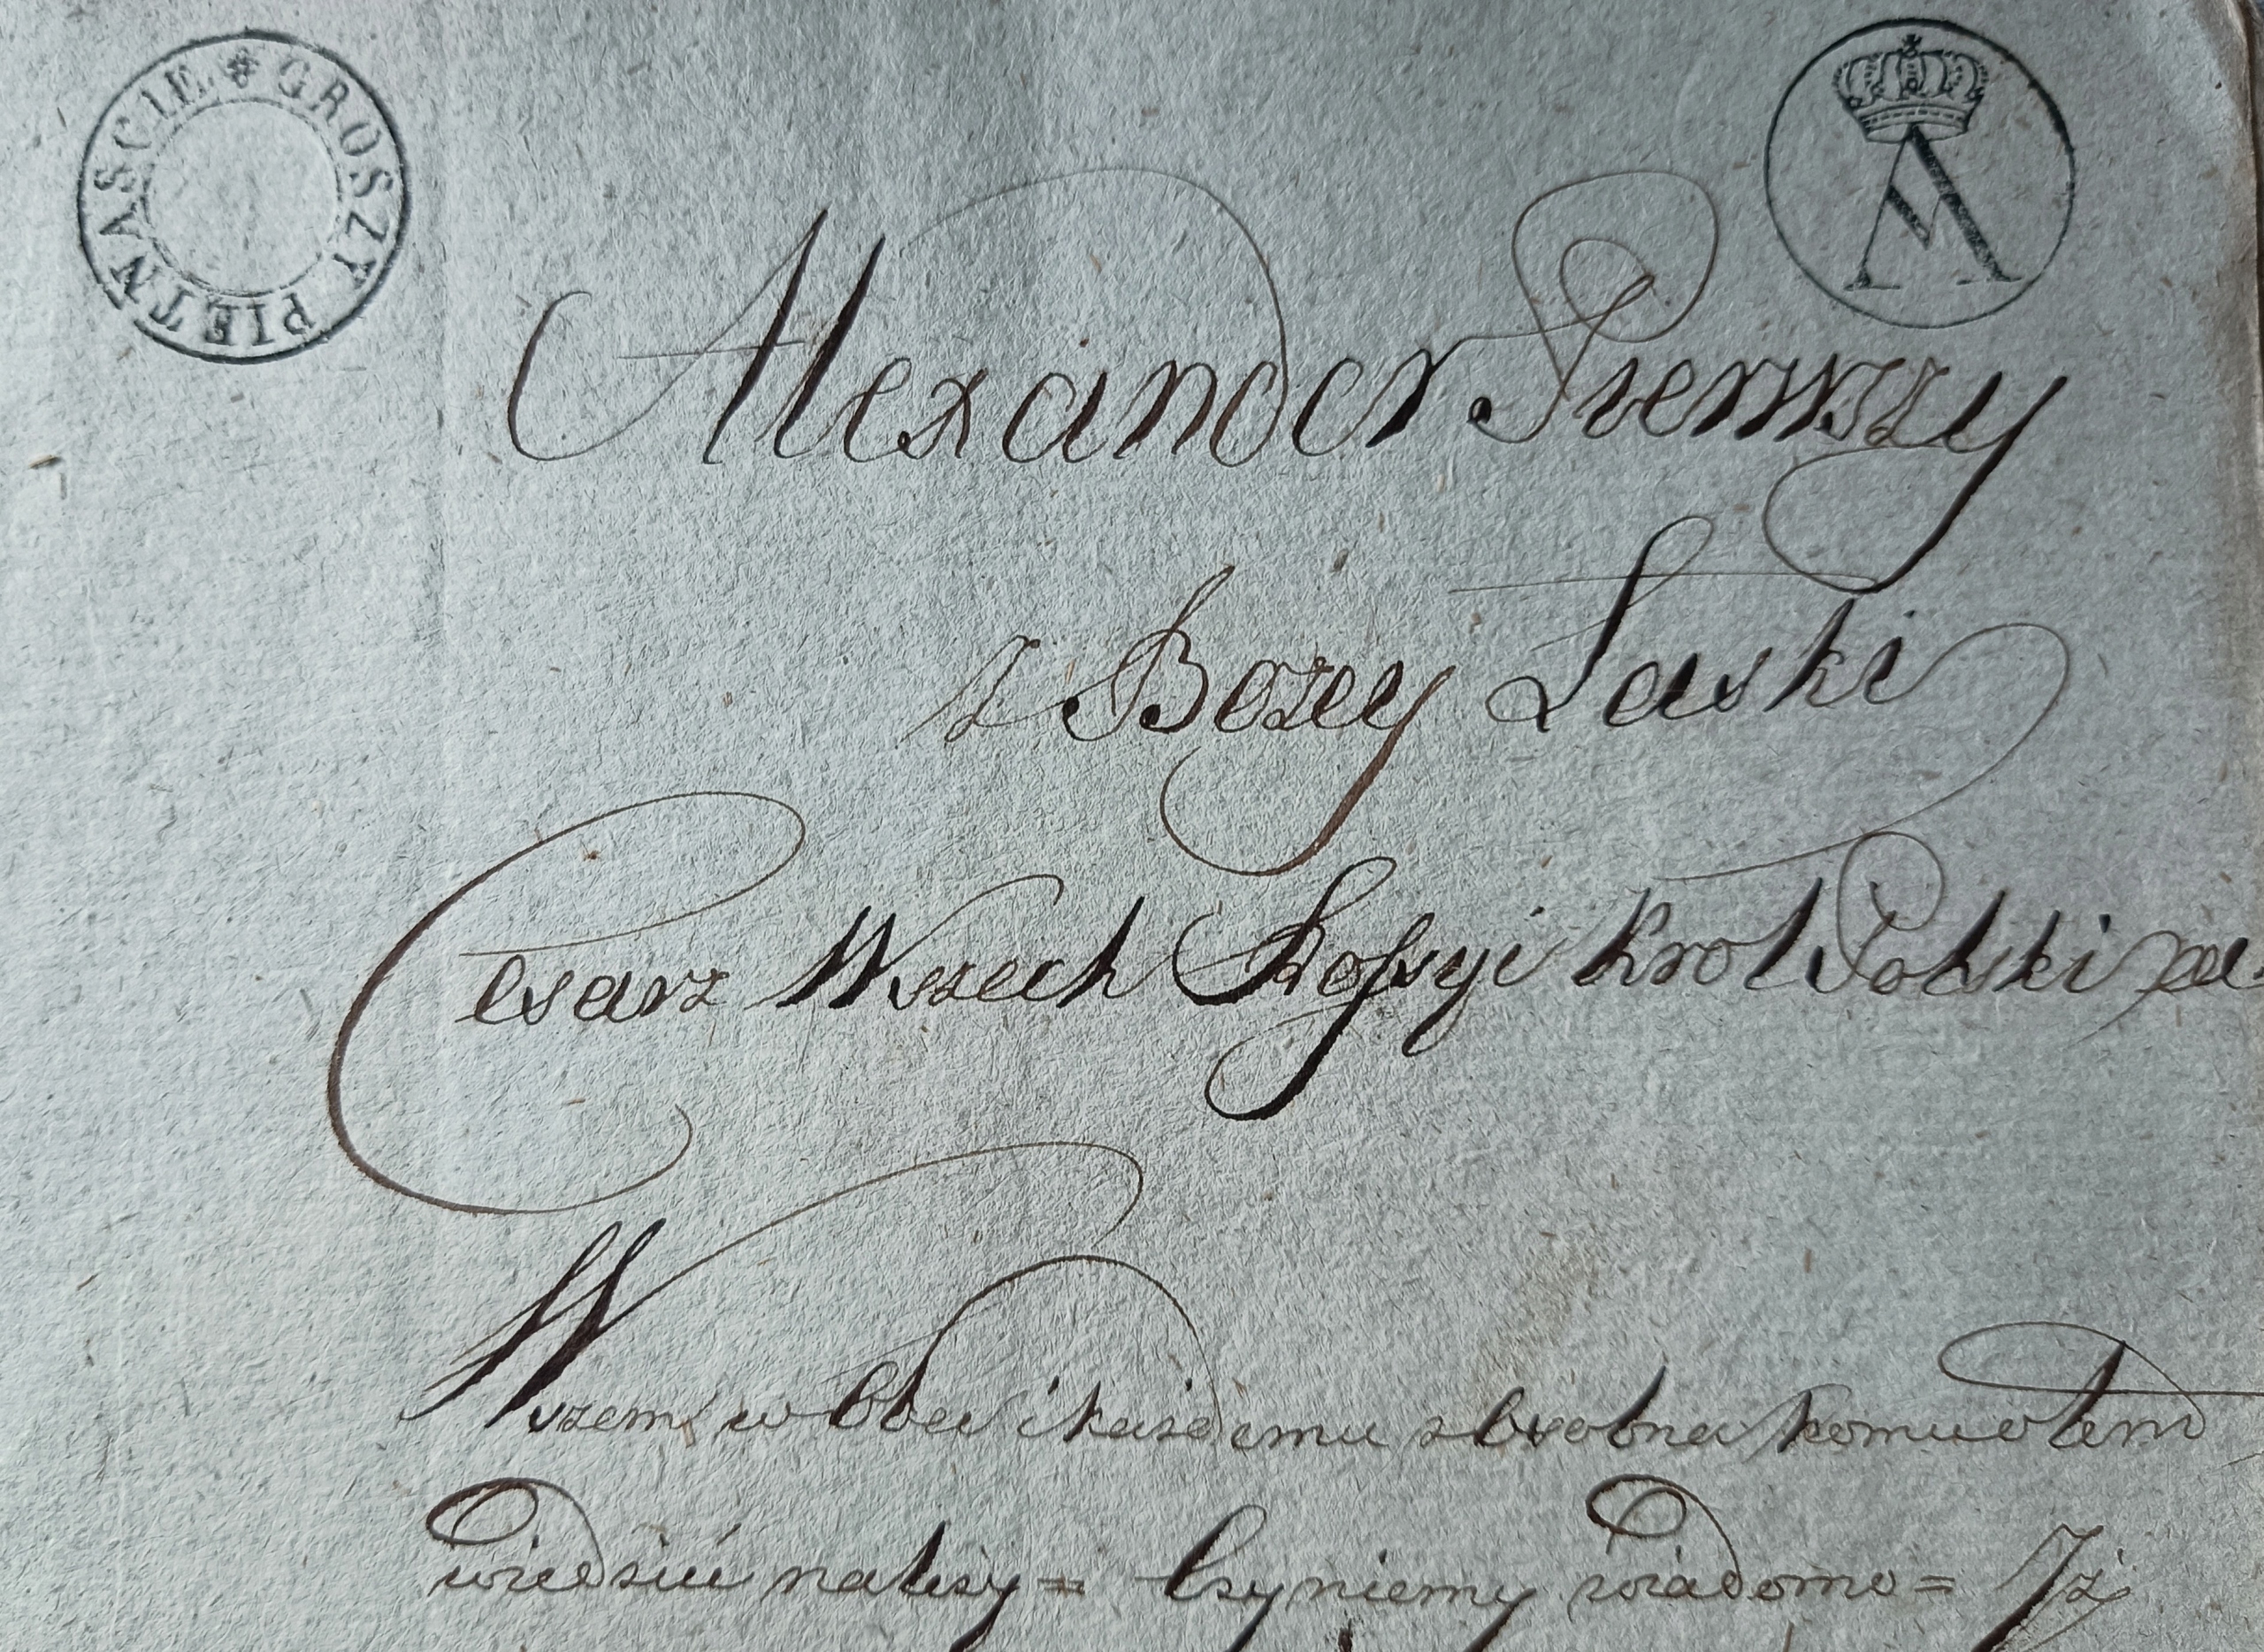 GROSZY PIETNAŚCIE
A
Alexander Pierwszy
z Bozey Łaski
Cesarz Wszech Rossyi Krol Polski &c
Wszem w Obec i kazdemu z Osobna komu o tem
wiedzieć nalezy = Czyniemy wiadomo = Iż